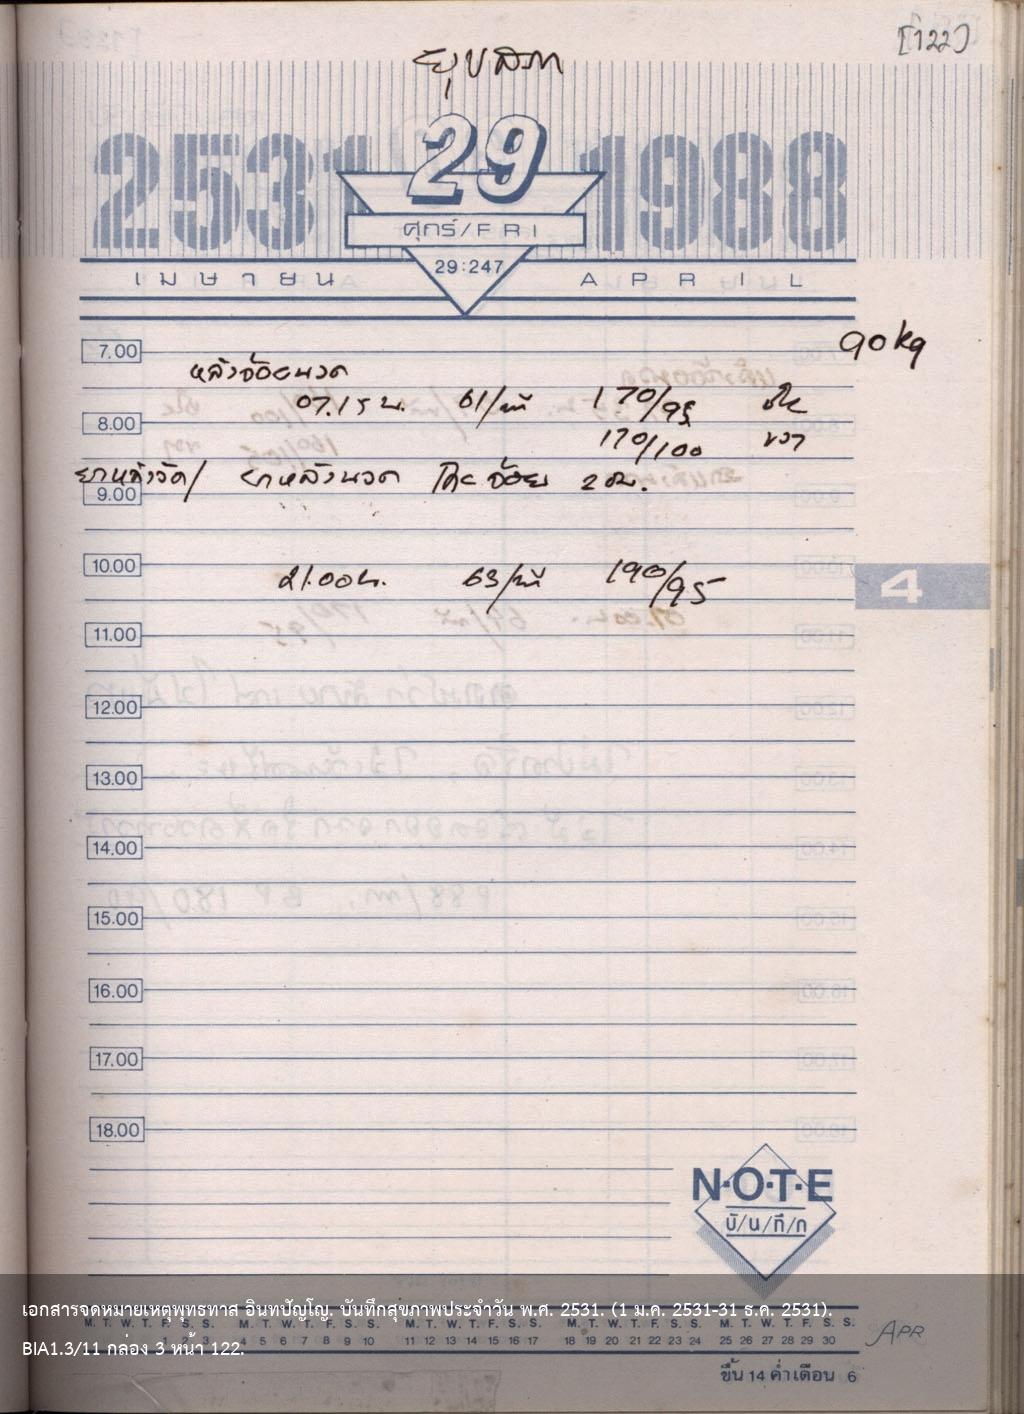 [122]
ยุบสภา
2531 29 1988
ศุกร์/FRI
29:247
เมษายน APRIL
90 kg
7.00
หลังจ้อยนวด
07.15 น. 61/นาที 170/95
8.00
170/100 ขวา
ยาหลังวัด/ ยาหลังนวด โดย จ้อย 2 ชม.
9.00
10.00
21.00 น. 63/นาที 190/95
4
11.00
12.00
13.00
14.00
15.00
16.00
17.00
18.00
N·O·T·E
บั/น/ทึ/ก
เอกสารจดหมายเหตุพุทธทาส อินทปัญโญ. บันทึกสุขภาพประจำวัน พ.ศ. 2531. (1 ม.ค. 2531-31 ธ.ค. 2531).
M. T. W. T. F. S. S. M. T. W. T. F. S. S. M. T. W. T. F. S. S. M. T. W. T. F. S. S. M. T. W. T. F. S. S.
1 2 3 4 5 6 7 8 9 10 11 12 13 14 15 16 17 18 19 20 21 22 23 24 25 26 27 28 29 30
APR
BIA1.3/11 กล่อง 3 หน้า 122.
ขึ้น 14 ค่ำเดือน 6